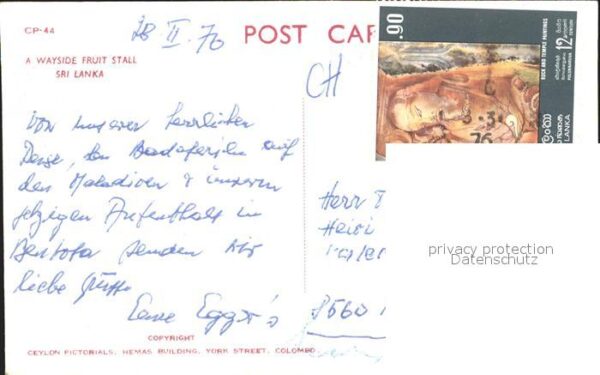 CP-44
28 II. 76
POST CAR
A WAYSIDE FRUIT STALL
SRI LANKA
CH
.90
ROCK AND TEMPLE PAINTINGS
12
CENTURY
POLONNARUWA
LANKA
3.3.
76
Von unserer herrlichen
Reise, den Badeferien auf
den Malediven & unserm
jetzigen Aufenthalt in
Bentota senden wir
liebe Grüsse
Eure Egger's
Herr
Heiri
8560
privacy protection
Datenschutz
COPYRIGHT
CEYLON PICTORIALS, HEMAS BUILDING, YORK STREET, COLOMBO